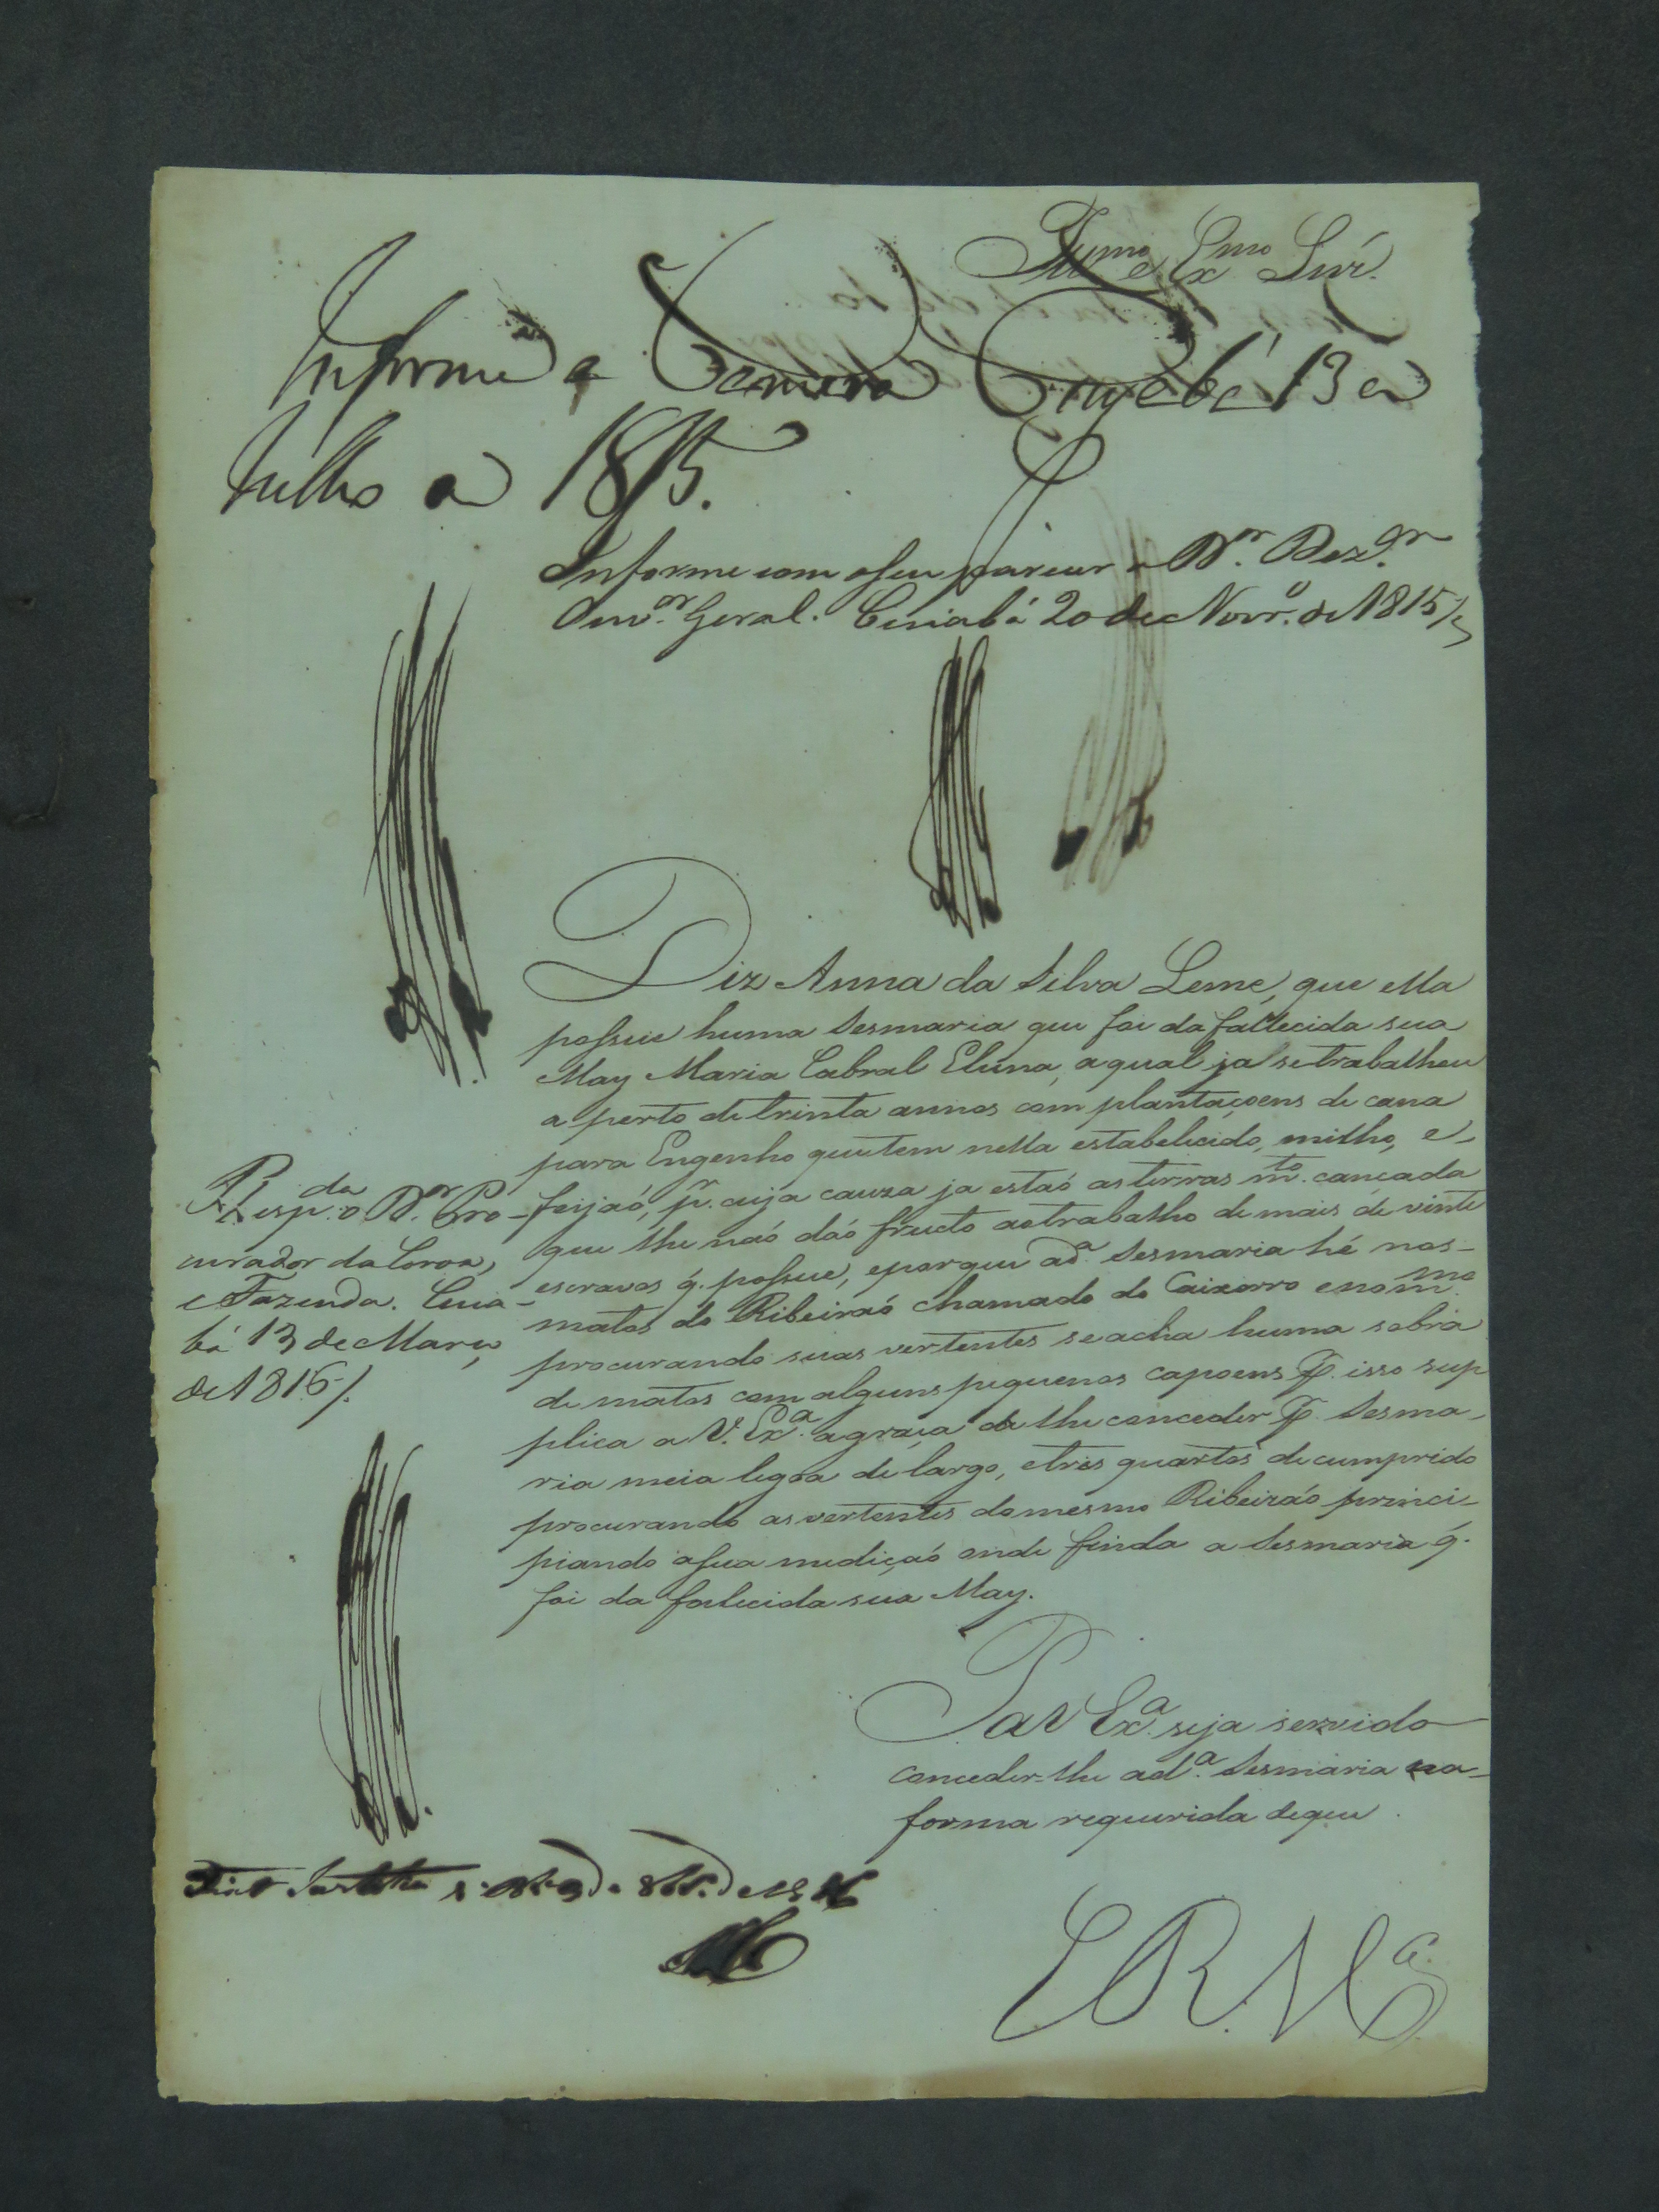 Illmo e Exmo Snr.
Informe a Camera Cuyabá 13 de
Julho de 1815.
Informe com o seu parecer o Dr. Dezor
Ouvor Geral. Cuiabá 20 de Novro de 1815/
Diz Anna da Silva Leme, que ella
possue huma Sesmaria que foi da fallecida sua
May Maria Cabral, a qual ja se trabalhou
a perto de trinta annos com plantaçoens de cana
para Engenho que tem nella estabelecido, milho, e
feijaó, pr. cuja cauza ja estaó as terras mto. cançada
que lhe naó daó fructo ao trabalho de mais de vinte
escravos q. possue, e porque a da Sesmaria hé nos
matos do Ribeiraó chamado do Caixorro e no mmo
procurando suas vertentes se acha huma sobra
de matos com alguns piquenos capoens P. isso sup
plica a V. Exa. a graça de lhe conceder P. Sesma-
ria meia legoa de largo, e tres quartos de cumprido
procurando as vertentes do mesmo Ribeiraó princi-
piando a sua mediçaó onde finda a Sesmaria q.
foi da falecida sua May.
Respda o Dr. Pro-
curador da Coroa,
e Fazenda. Cuia-
bá 13 de Março
de 1816/.
P a V Exa. seja servido
conceder-lhe a da. Sesmaria na
forma requerida de que
E R Mce